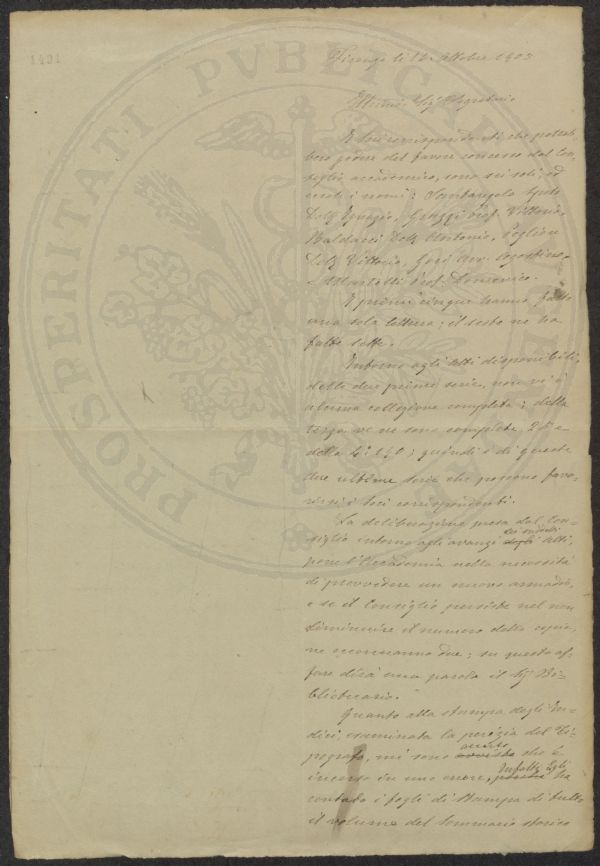 1401
PROSPERITATI PVBLICAE
Firenze li 12 Ottobre 1903
Illmo Sig. Segretario
I Soci corrispondenti che potreb-
bero godere del favore concesso dal Con-
siglio accademico, sono sei soli; ed
eccoli i nomi:
Dott. Ignazio, Prof. Vittorio,
Baldacci Dott. Antonio,
Dott. Vittorio, Gori Avv. Agostino,
e Martelli Prof. Domenico.
I primi cinque hanno fatto
una sola lettura; il sesto ne ha
fatte sette.
Intorno agli Atti disponibili,
delle due prime serie, non vi è
alcuna collezione completa; della
terza ve ne sono complete e
della 4a 140; quindi è di queste
due ultime serie che possono favo-
rirsi i Soci corrispondenti.
La deliberazione presa dal Con-
siglio intorno agli avanzi degli Atti,
pone l'Accademia nella necessità
di provvedere un nuovo armadio,
e se il Consiglio persiste nel non
diminuire il numero delle copie,
ne occorreranno due; su questo af-
fare dirà una parola il Sig. Bi-
bliotecario.
Quanto alla stampa degli In-
dici, esaminata la perizia del Ti-
pografo, mi sono accorto che è
incorso in uno errore, Infatti Egli ha
contato i fogli di stampa di tutto
il volume del Sommario storico